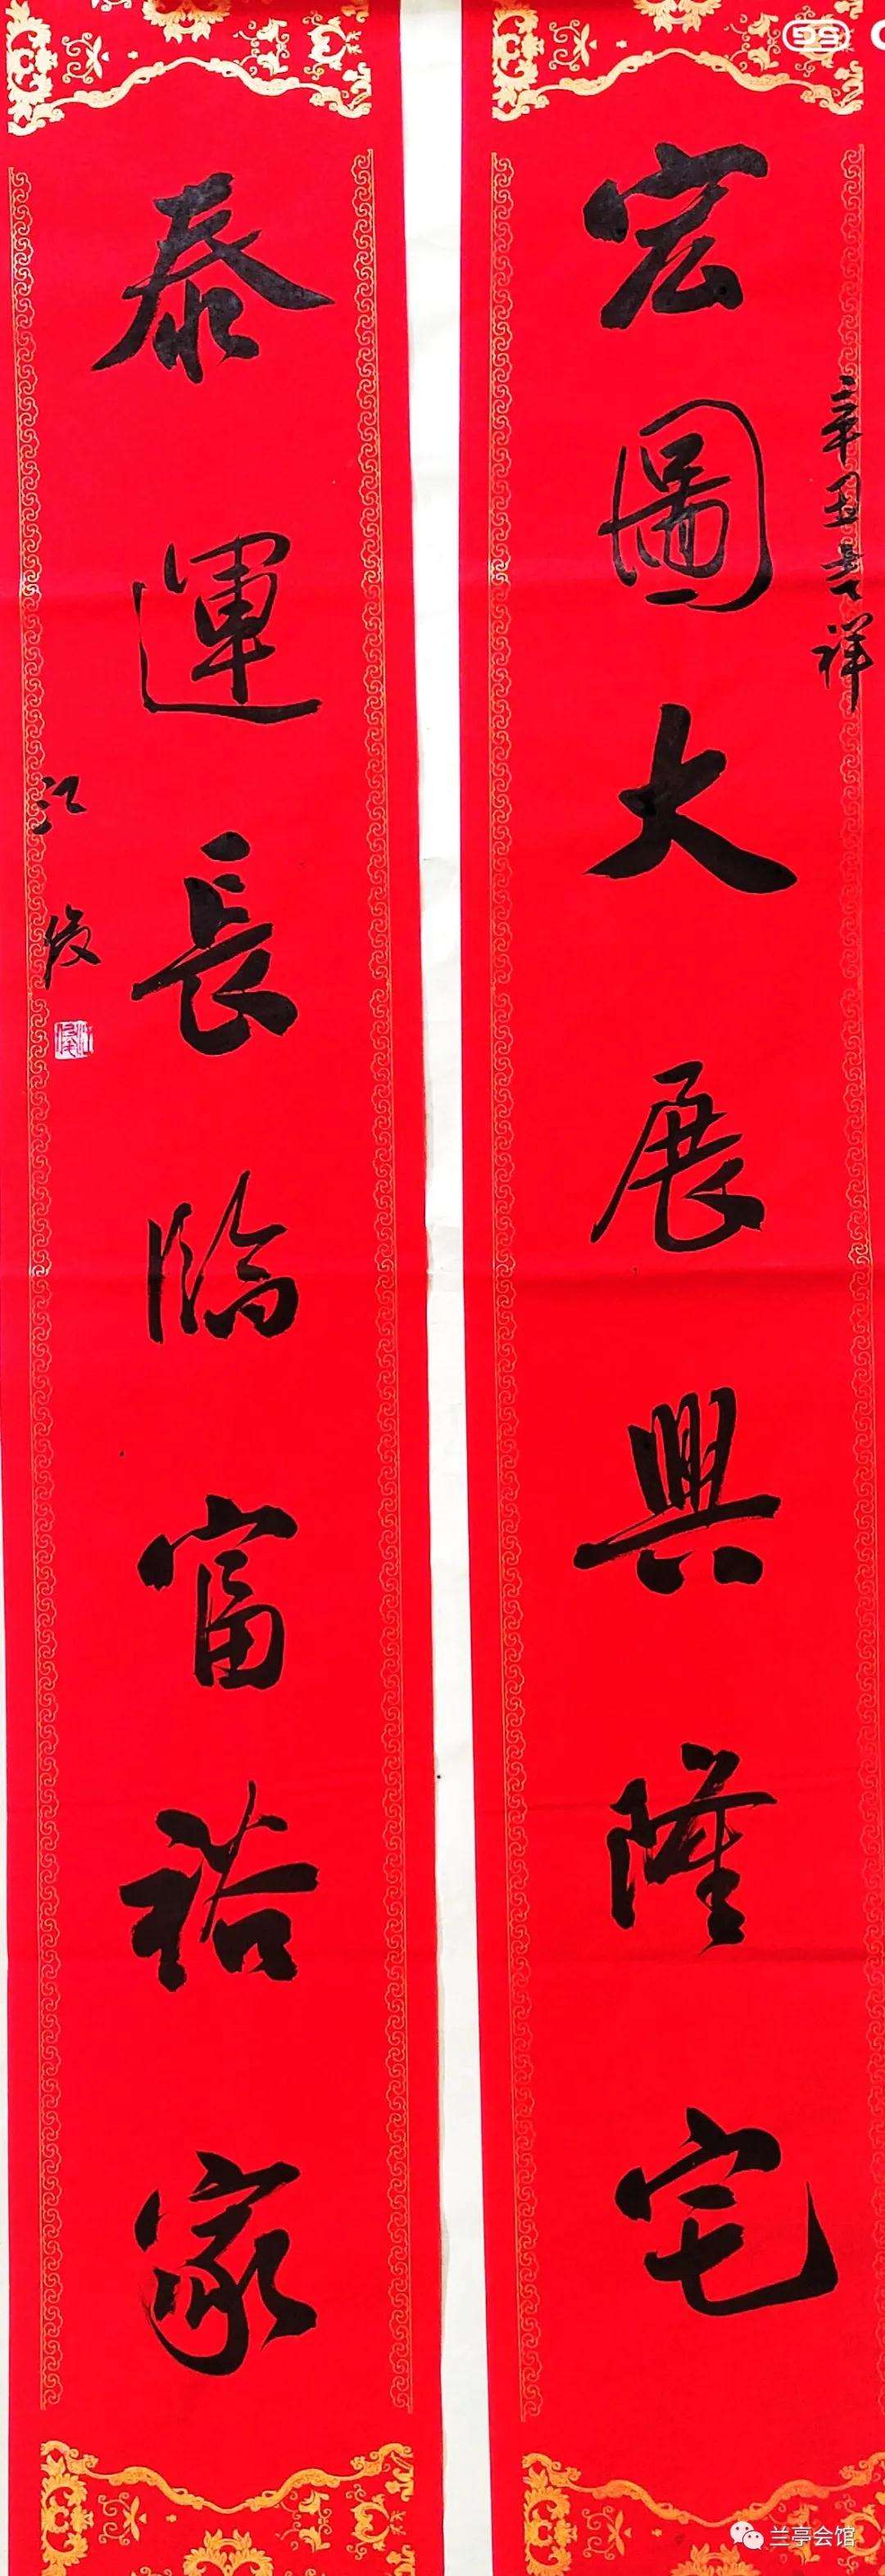 宏圖大展興隆宅
辛丑吉祥
泰運長臨富裕家
江俊
兰亭会馆